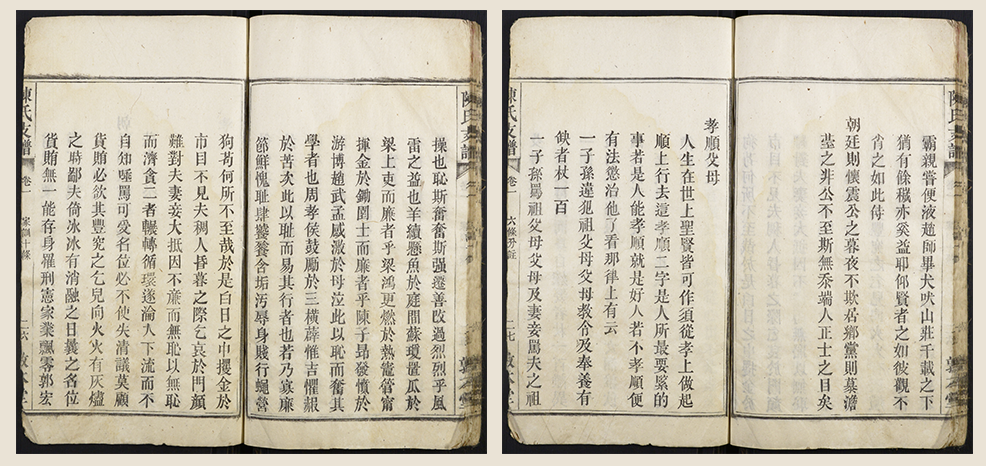 操也恥斯奮奮斯强遷善改過烈烈乎風
雷之益也羊續懸魚於庭閒蘇瓊置瓜於
梁上吏而廉者乎梁鴻更燃於熱竈管甯
揮金於鋤圃士而廉者乎陳子昻發憤於
游博趙武孟感激於母泣此以恥而奮其
學者也周孝侯鼓勵於三橫薛惟吉懼赧
於苦次此以恥而易其行者也若乃寡廉
節鮮愧恥肆饕餮含垢汚辱身賤行蠅營
狗茍何所不至哉於是白日之中攫金於
市目不見夫稠人昏暮之際乞哀於門顏
難對夫妻妾大抵因不㢘而無恥以無恥
而濟貪二者輾轉循環遂淪人下流而不
自知唾罵可愛名位必不使失清議莫顧
貨賄必欲其豐究之乞兒向火火有灰燼
之時鄙夫倚冰冰有消融之日曩之名位
貨賄無一能存身罹刑憲家業飄零郭宏
陳氏支譜
卷一
家訓十條
二六
敦本堂
霸親嘗便液趙師𢍰犬吠山莊千載之下
猶有餘穢亦奚益耶何賢者之如彼觀不
肖之如此待
朝廷則懷震公之暮夜不欺君鄉黨則慕澹
䑓之非公不至斯無忝端人正士之目矣
孝順父母
人生在世上聖賢皆可作須從孝上做起
順上行去這孝順二字是人所最要緊的
事若是人能孝順就是好人若不孝順便
有法懲治他了看那律上有云
一子孫違犯祖父母父母敎令及奉養有
缺者杖一百
一子孫罵祖父母父母及妻妾罵夫之祖
陳氏支譜
卷一
六條分註
二七
敦本堂